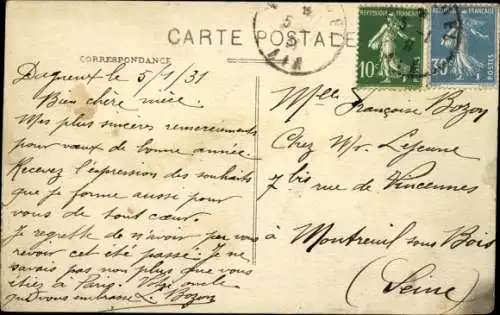 CARTE POSTALE
CORRESPONDANCE
REPUBLIQUE FRANÇAISE
10c
FRANÇAISE
30c
POSTES
AIN
Dagneux le 5/1/31
Bien chère nièce.
Mes plus sincères remerciements
pour vœux de bonne année.
Recevez l'expression des souhaits
que je forme aussi pour
vous de tout cœur.
Je regrette de n'avoir pu vous
revoir cet été passé. Je ne
savais pas non plus que vous
étiez à Paris. Votre oncle
qui vous embrasse L. Bozon
Mlle Françoise Bozon
Chez Mr Lejeune
7 bis rue de Vincennes
à Montreuil sous Bois
(Seine)